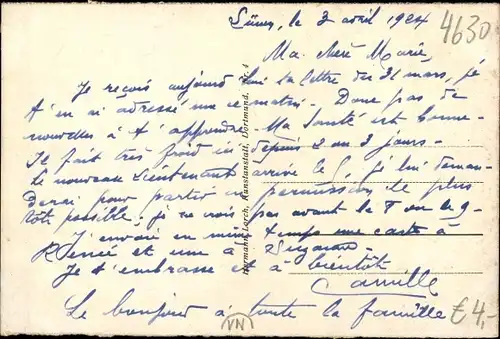 Lünen, le 3 avril 1924
4630
Ma chère Marie,
Je reçois aujourd'hui ta lettre du 31 mars, je
t'en ai adressé une ce matin. Donc pas de
nouvelles à t'apprendre. Ma santé est bonne.
Il fait très froid ici depuis 2 ou 3 jours.
Le nouveau lieutenant arrive le 5, je lui deman-
derai pour partir en permission le plus
tôt possible; je ne crois pas avant le 8 ou le 9.
J'envoie en même temps une carte à
Renée et une à
Je t'embrasse et à bientôt
Camille
Le bonjour à toute la famille
€ 4,-
VN
Hermann Lorch, Kunstanstalt, Dortmund. Nr. 4